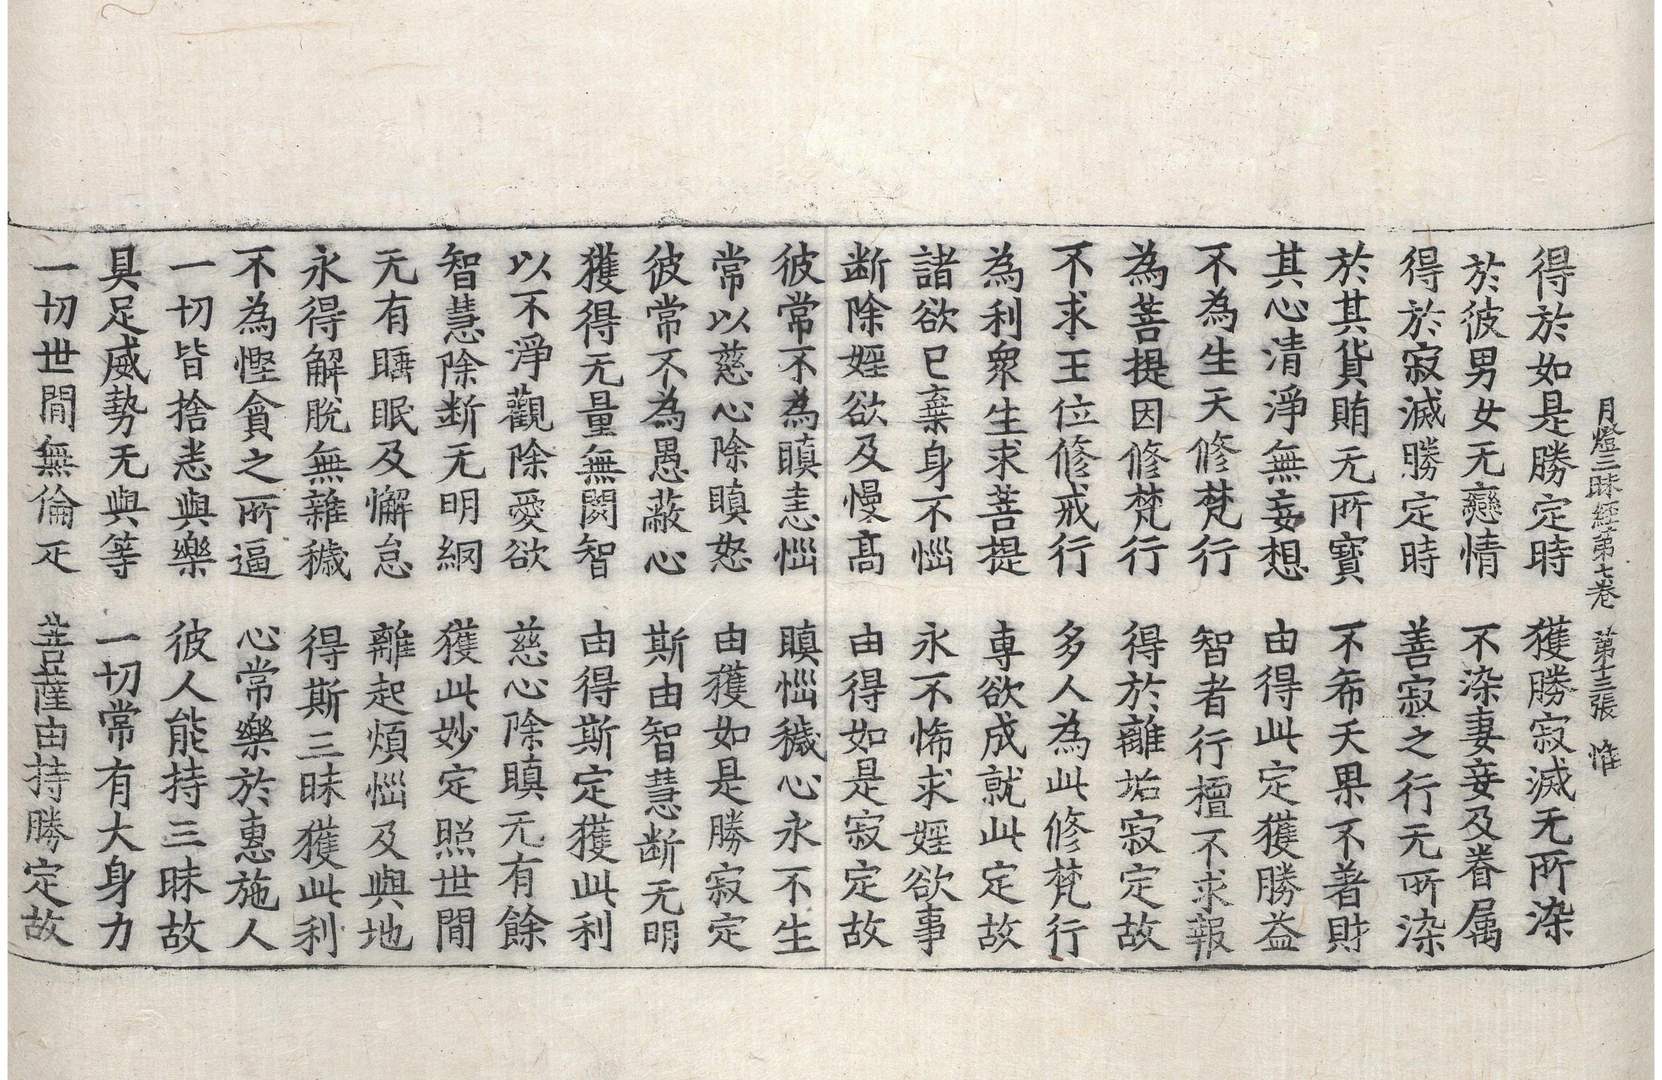 月燈三昧經第七卷 第十三張 惟
得於如是勝定時 獲勝寂滅无所染
於彼男女无戀情 不染妻妾及眷属
得於寂滅勝定時 善寂之行无所染
於其貨賄无所寶 不希天果不著財
其心清淨無妄想 由得此定獲勝益
不為生天修梵行 智者行檀不求報
為菩提因修梵行 得於離垢寂定故
不求王位修戒行 多人為此修梵行
為利衆生求菩提 専欲成就此定故
諸欲已棄身不惱 永不悕求婬欲事
断除婬欲及慢高 由得如是寂定故
彼常不為瞋恚惱 瞋惱穢心永不生
常以慈心除瞋怒 由獲如是勝寂定
彼常不為愚蔽心 斯由智慧断无明
獲得无量無閡智 由得斯定獲此利
以不淨觀除愛欲 慈心除瞋无有餘
智慧除断无明網 獲此妙定照世間
无有睡眠及懈怠 離起煩惱及與地
永得解脫無雜穢 得斯三昧獲此利
不為慳貪之所逼 心常樂於惠施人
一切皆捨悉與樂 彼人能持三昧故
具足威勢无與等 一切常有大身力
一切世間無倫疋 菩薩由持勝定故